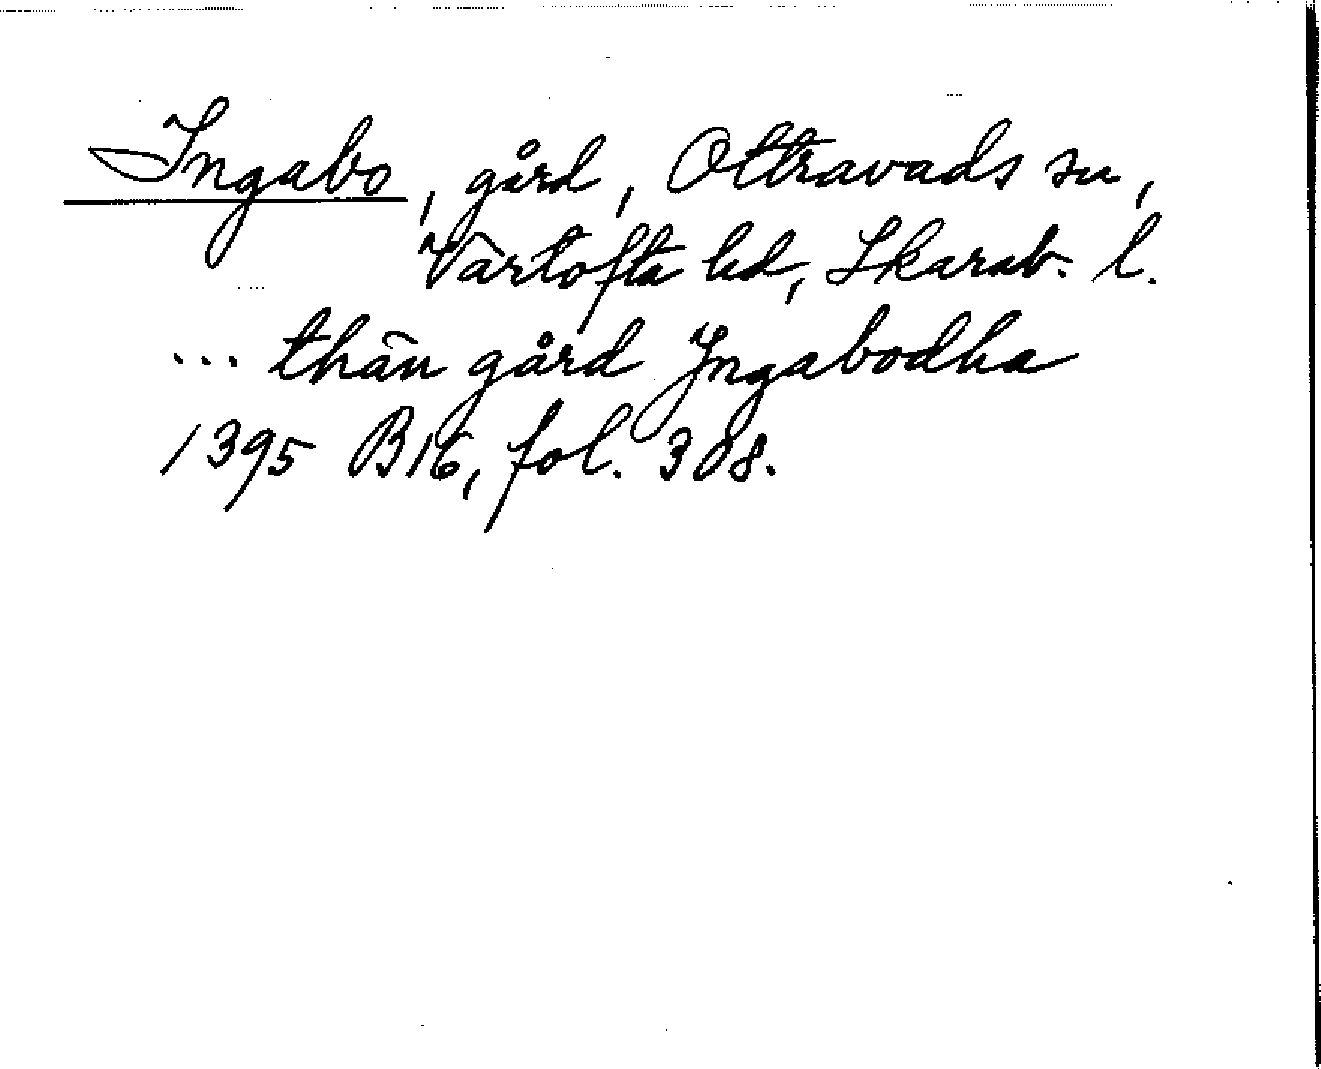 Ingabo, gård, Ottravads sn,
Vartofta hd, Skarab. l.
... thän gård Jngabodha
1395 B16, fol. 308.